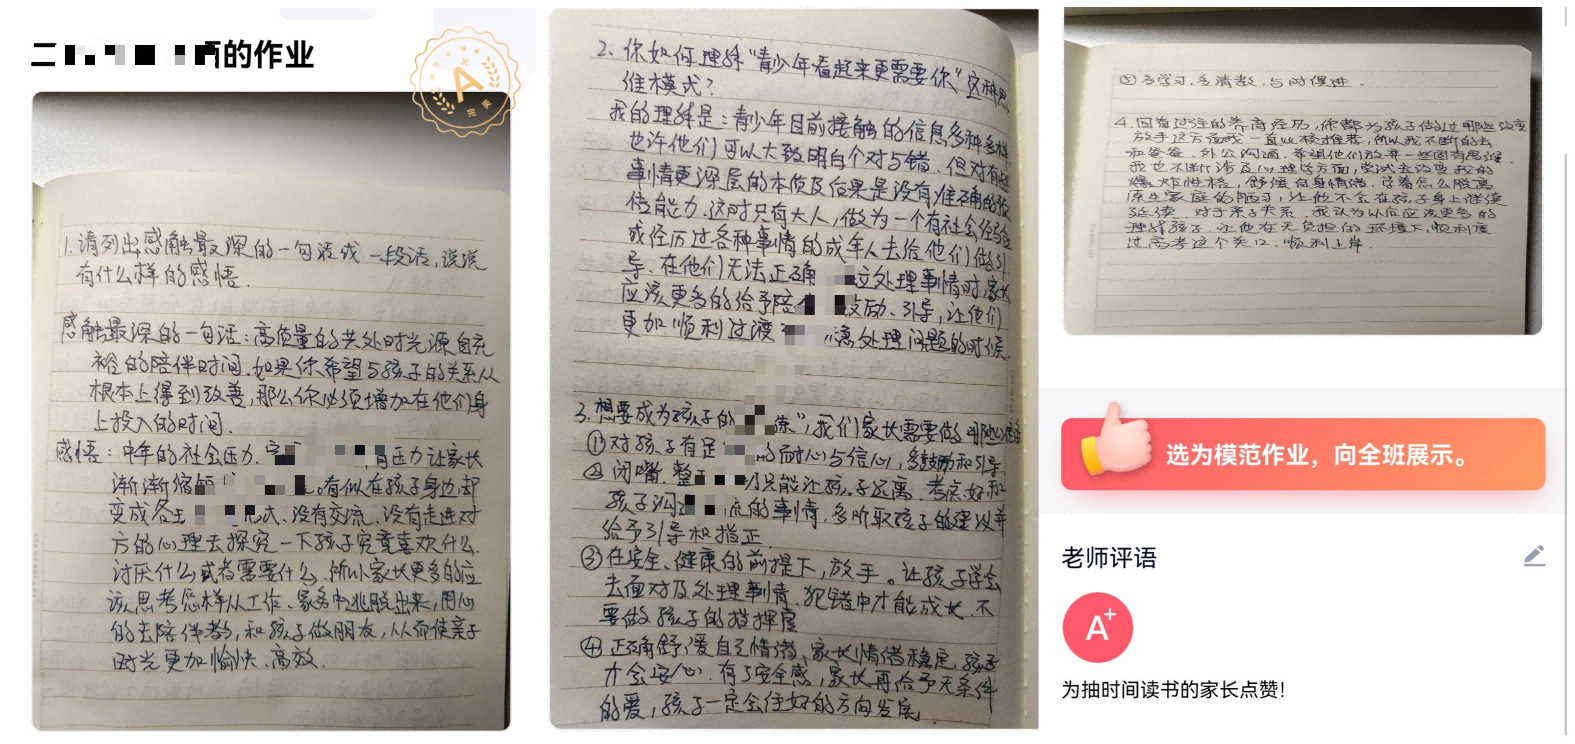 二 的作业
A+
完美
1.请列出感触最深的一句话或一段话,说说
有什么样的感悟.
感触最深的一句话:高质量的共处时光源自充
裕的陪伴时间.如果你希望与孩子的关系从
根本上得到改善,那么你必须增加在他们身
上投入的时间.
感悟:中年的社会压力、 有压力让家长
渐渐缩短 。有似在孩子身边,却
变成各 式、没有交流、没有走进对
方的心理去探究一下孩子究竟喜欢什么.
讨厌什么或者需要什么.所以家长更多的应
该思考怎样从工作、家务中逃脱出来,用心
的去陪伴教,和孩子做朋友,从而使亲子
时光更加愉快、高效.
2.你如何理解“青少年看起来更需要你”这种思
维模式?
我的理解是:青少年目前接触的信息多种多样
也许他们可以大致明白个对与错.但对有些
事情更深层的本质及后果是没有准确的
能力.这时只有大人,做为一个有社会经验
或经历过各种事情的成年人去给他们做引
导.在他们无法正确 立处理事情时,家长
应该更多的给予陪 鼓励、引导,让他们
更加顺利过渡 处理问题的时候.
3.想要成为孩子的 练”,我们家长需要做哪些准备
①对孩子有足 的耐心与信心,多鼓励和引导.
②闭嘴.整 只能让孩子远离.考虑好和
孩子沟 流的事情,多听取孩子的建议并
给予引导和指正.
③在安全、健康的前提下,放手。让孩子学会
去面对及处理事情.犯错中才能成长.不
要做孩子的指挥官
④正确舒缓自己情绪、家长情绪稳定.孩子
才会安心.有了安全感,家长再给予无条件
的爱,孩子一定会往好的方向发展.
⑤多学习,多清教,与时俱进.
4.回首过往的养育经历,你都为孩子做过哪些改变
放手这方面我一直比较推荐,所以我不断的去
和爸爸、外公沟通.希望他们放弃一些固有思维.
我也不断涉及心理学方面,尝试去改变我的
爆炸性格,舒缓自身情绪.学着怎么脱离
原生家庭的陋习,让他不会在孩子身上继续
延续.对于亲子关系.我认为以后应该更多的
理解孩子.让他在无负担的环境下,顺利度
过高考这个关口.顺利上岸.
选为模范作业,向全班展示。
老师评语
A+
为抽时间读书的家长点赞!